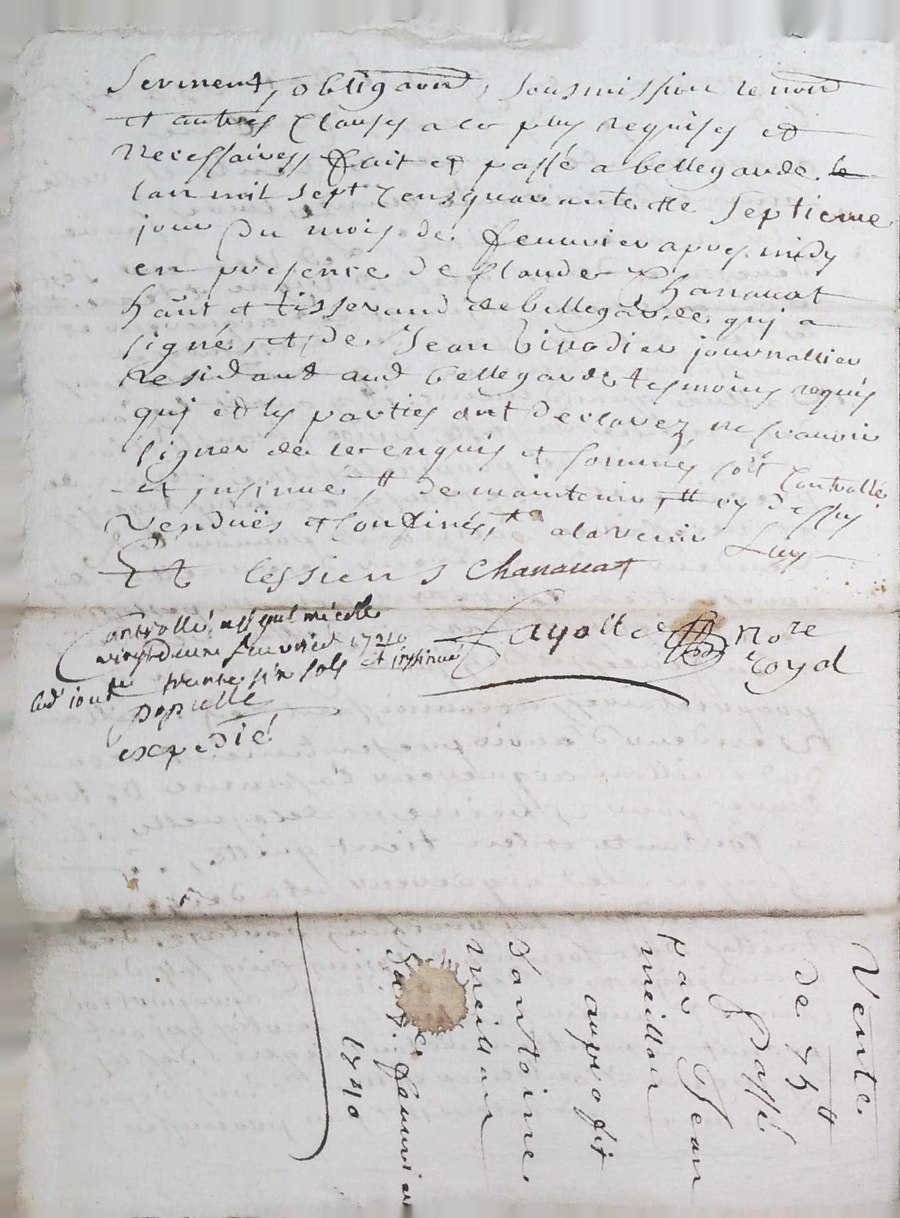 serment, obligaon, soumission renon
et autres clauses a ce plus requises et
necessaires, fait et passé a bellegarde le
lan mil sept cens quarante & le septieme
jour du mois de feuvrier apres midy
en presence de Claude Chanauat
haut et tisserand de bellegarde qui a
signé, et, de Jean birodier journallier
residant aud bellegarde tesmoins requis
qui et les parties ont declarez ne scauoir
signer de ce enquis et sommés soit controllé
et insinué # de maintenir # cy dessus
vendues et confinés, + alavenir Luy
Et les siens Chanauat
Fayolle Nore
royal
Controllé
vingt feuvrier 1740
led jour trente six sols et insinué
expedié
Vente
de 75 #
Passé
par Jean
meillon
au profit
dantoine
meillon
feuvrier
1740